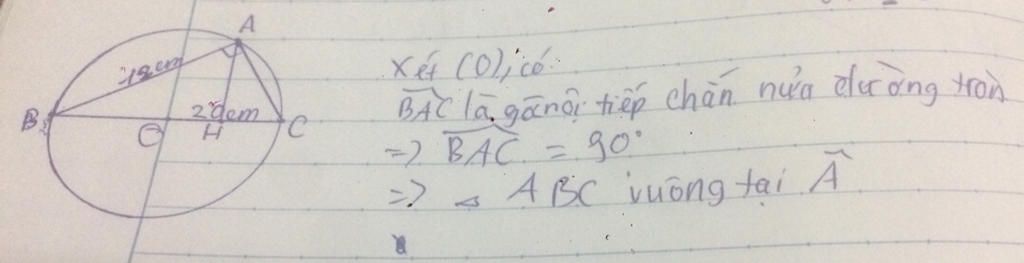 A
18cm
B
O
29cm
H
C
Xét (O), có
BAC là góc nội tiếp chắn nửa đường tròn
=> BAC = 90°
=> △ ABC vuông tại A